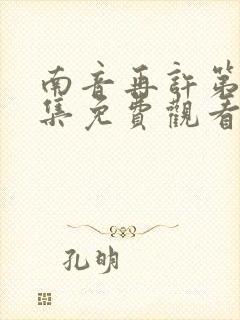 南音再許第
集免費觀看
孔明